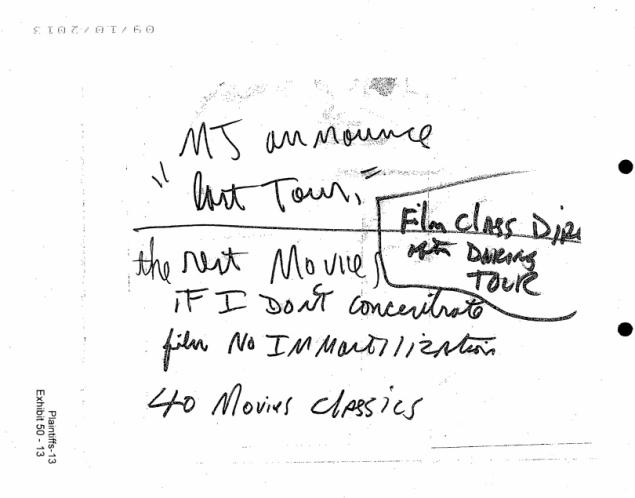 09/10/2013
MJ announce
"last Tour,"
Film Class
DURING
TOUR
the rest Movies
IF I DON'T concentrate
film No IMMortillization
40 Movies Classics
Plaintiffs-13
Exhibit 50 - 13